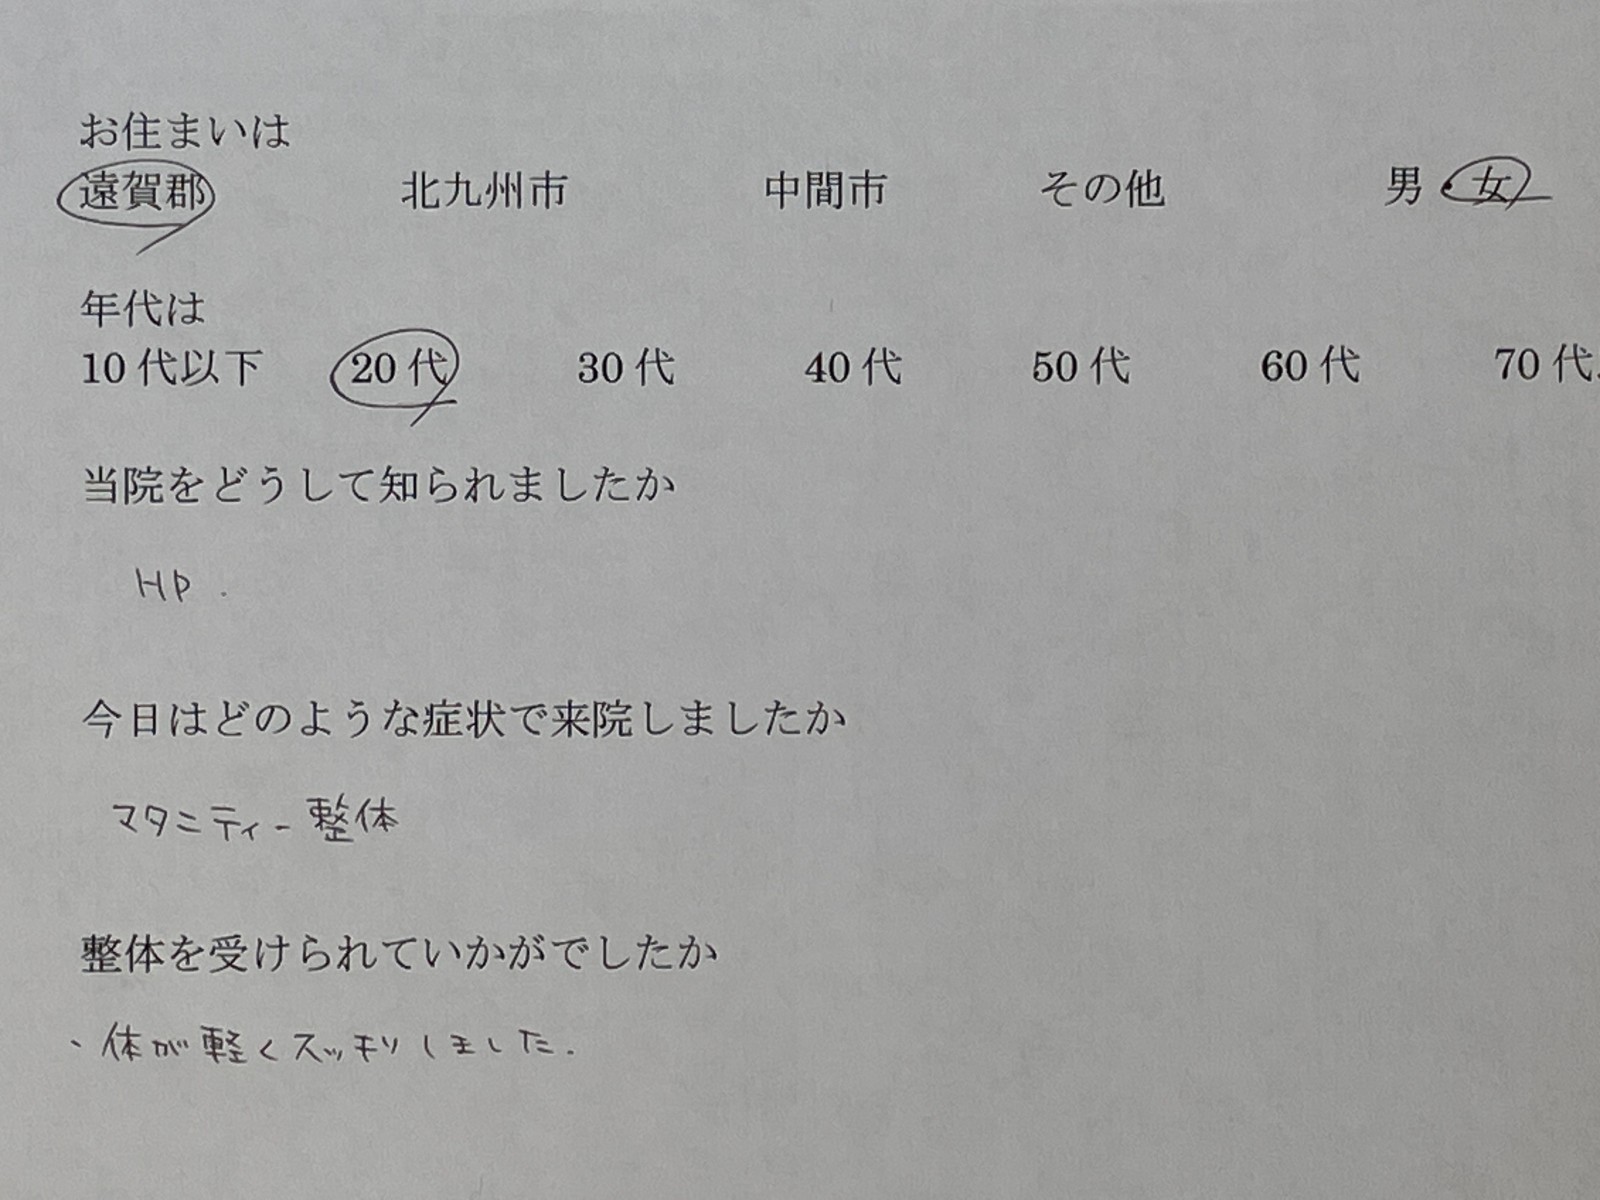 お住まいは
遠賀郡 北九州市 中間市 その他 男・女
年代は
10代以下 20代 30代 40代 50代 60代 70代
当院をどうして知られましたか
HP.
今日はどのような症状で来院しましたか
マタニティー整体
整体を受けられていかがでしたか
・体が軽くスッキリしました.